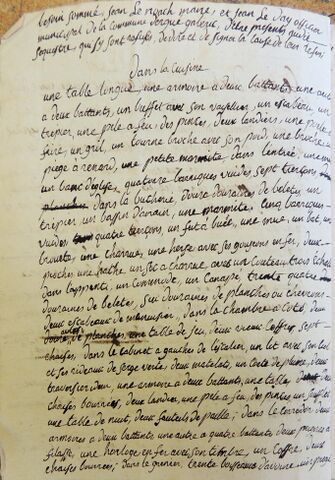 besoin sommé, jean Le nyach maire, et jean Le day officier
municipal de la commune d'ergué gaberic, d'être présents gardes
sequestre, qui s'y sont refusés, de dire et de signer la cause de leur refus
Dans la Cuisine
une table longue, une armoire a deux battants, une autre
a deux battants, un buffet avec son vaisselier, un escabeau, un
trepier, une pele a feu, des pintes, deux landiers, une poele
frire, un gril, un tourne broche avec son poid, une broche, un
piege a renard, une petite marmite, dans l'entrée, une
un banc d'eglise, quatorze barriques vuides, sept tierçons,
dans la bucherie, douze douzaines de beletes, un
trepier, un bassin d'airain, une marmite, cinq barriques
vuides, quatre tierçons, un fut a buée, une mue, un bat, un
brouete, une charrue, une herse avec ses goupens en fer, deux
une hache, un soc a charrue, avec un couteau, trois
dans l'appenti, un commode, un canapé, trente quatre
douzaines de beletes, six douzaines de planches ou chevrons,
deux escabeaux de menuisier, dans la chambre a coté, deux
de planches, une table de jeu, deux vieux coffres, sept
chaises, dans le cabinet a gauche de l'escalier, un lit avec, son
et ses rideaux de serge verte, deux matelats, un coete de plume, deux
traversiers, une armoire a deux battants, une table,
chaises bourrées, deux landiers, une pele a feu, des pintes, un soufflet
une table de nuit, deux fauteuils de paille; dans le corridor deux
armoires a deux battants une autre a quatre battants deux
filasse, une horloge en fer avec son timbre, un coffre, deux
chaises bourrées; dans le grenier, trente boisseaux d'avoine